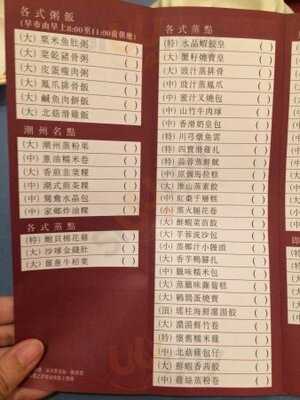 各式粥飯
(早市由早上8:00至11:00前供應)
(大) 粟米魚肚粥 ( )
(大) 菜乾豬骨粥 ( )
(大) 皮蛋瘦肉粥 ( )
(大) 鳳爪排骨飯 ( )
(大) 鹹魚肉餅飯 ( )
(大) 北菇滑雞飯 ( )
潮州名點
(大) 潮州蒸粉果 ( )
(中) 蔥油糯米卷 ( )
(大) 香煎韭菜粿 ( )
(中) 潮式煎茶粿 ( )
(中) 鴛鴦水晶包 ( )
(中) 家鄉炸油粿 ( )
各式蒸點
(特) 鮑貝棉花雞 ( )
(大) 沙球金錢肚 ( )
(大) 薑蔥牛栢葉 ( )
各式蒸點
(特) 水晶蝦餃皇 ( )
(大) 蟹籽燒賣皇 ( )
(大) 豉汁蒸排骨 ( )
(中) 豉汁蒸鳳爪 ( )
(中) 蜜汁叉燒包 ( )
(中) 山竹牛肉球 ( )
(中) 香滑奶皇包 ( )
(特)
(特) 四寶滑雞扎 ( )
(特) 蒜蓉蒸鮮魷 ( )
(中) 原個馬拉糕 ( )
(大) 潮山蒸素餃 ( )
(中) 紅棗千層糕 ( )
(小) 蒸火腿花卷 ( )
(大) 鮮蝦菜苗餃 ( )
(大) 芋蓉流沙包 ( )
(小) 蒸椰汁小饅頭 ( )
(大) 香芋鴨腳扎 ( )
(中) 臘味糯米包 ( )
(大) 蒸臘味蘿蔔糕 ( )
(大) 鵪鶉蛋燒賣 ( )
(頂) 瑤柱海鮮灌湯餃 ( )
(大) 濃湯鮮竹卷 ( )
(特) 懷舊糯米雞 ( )
(中) 北菇雞包仔 ( )
(大) 鮮蝦香茜餃 ( )
(中) 雞絲蒸粉卷 ( )